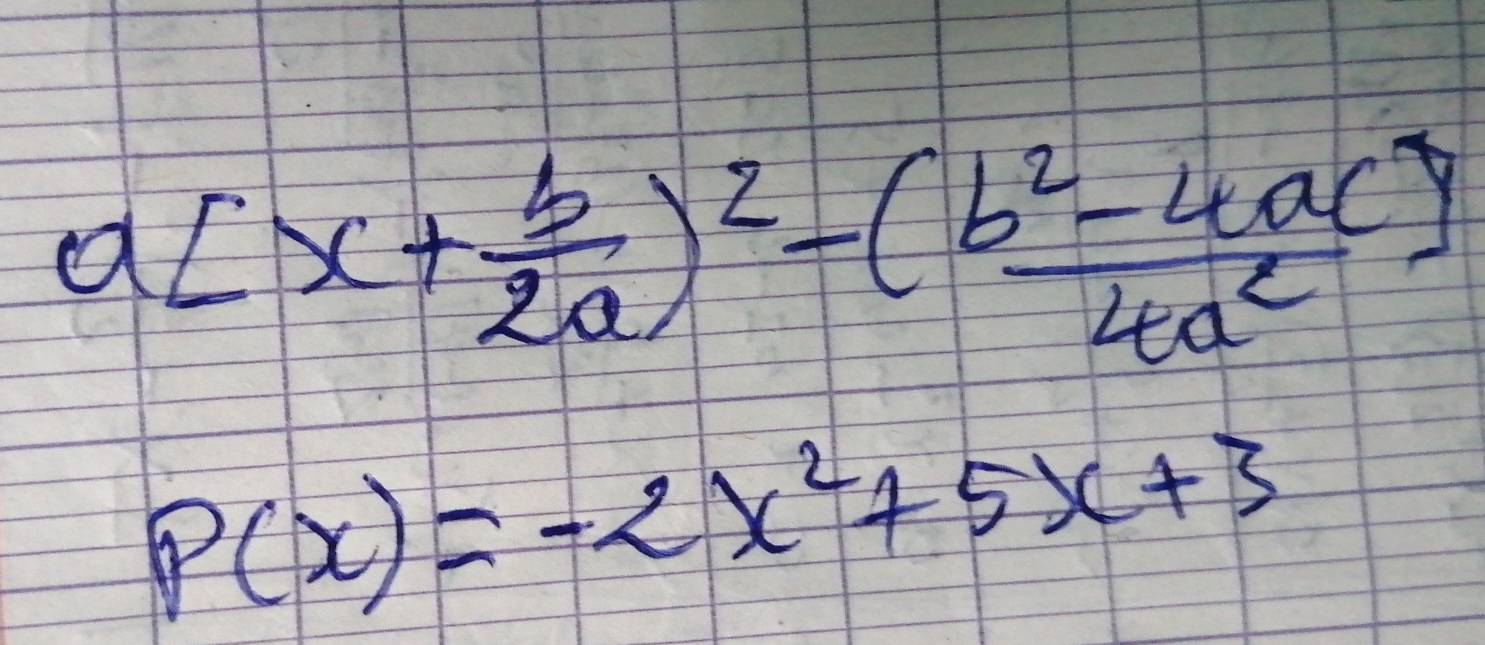 a[x + b/2a)² - (b² - 4ac/4a²)]
P(x) = -2x² + 5x + 3